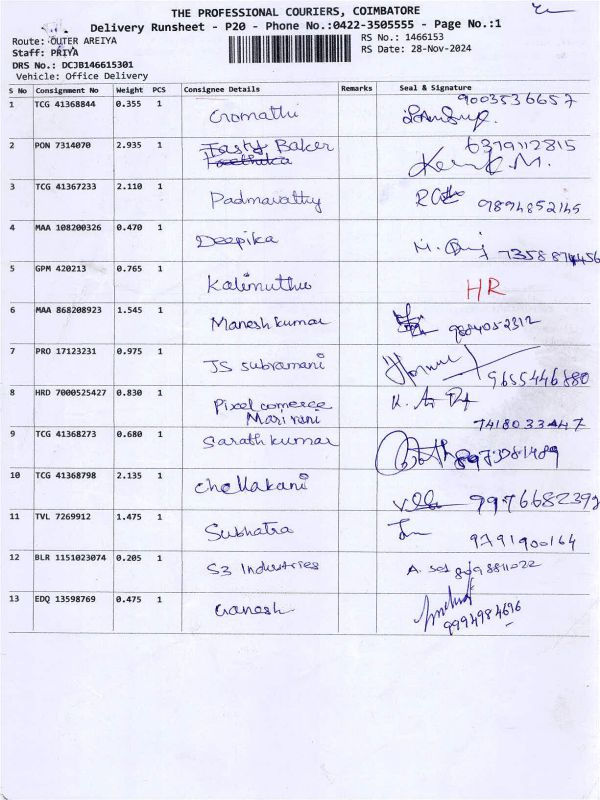 THE PROFESSIONAL COURIERS, COIMBATORE
Delivery Runsheet - P20 - Phone No.:0422-3505555 - Page No.:1
Route: OUTER AREIYA
Staff: PRIYA
DRS No.: DCJB146615301
Vehicle: Office Delivery
RS No.: 1466153
RS Date: 28-Nov-2024
S No Consignment No Weight PCS Consignee Details Remarks Seal & Signature
1 TCG 41368844 0.355 1 Cromathi 9003536657
2 PON 7314070 2.935 1 Tasty Baker 6379112815
3 TCG 41367233 2.110 1 Padmavathy 9894852145
4 MAA 108200326 0.470 1 Deepika
5 GPM 420213 0.765 1 Kalimuthu HR
6 MAA 868208923 1.545 1 Manesh kumar
7 PRO 17123231 0.975 1 JS subramani 9655446880
8 HRD 7000525427 0.830 1 Pixel comerce
7418033447
9 TCG 41368273 0.680 1 Sarath kumar
10 TCG 41368798 2.135 1 Chellakani 9976682392
11 TVL 7269912 1.475 1 Subhatra 9791900164
12 BLR 1151023074 0.205 1 S3 Industries
13 EDQ 13598769 0.475 1 Ganesh
9994984696